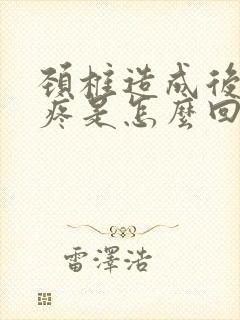 頚柱造成後
疼是怎麼回
雷澤浩